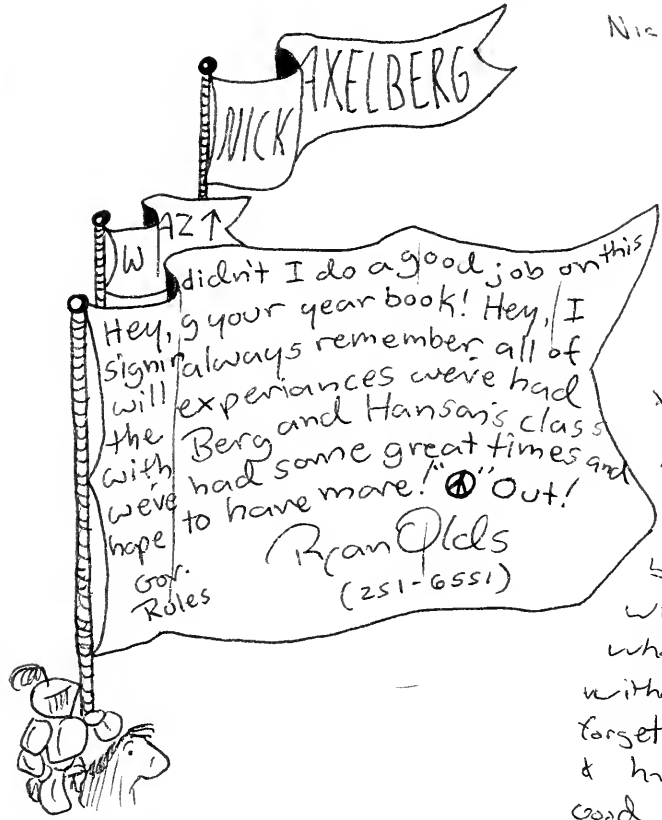 Nic
NICK AXELBERG
W AZ↑
didn't I do a good job on this
Hey, g your year book! Hey, I
signin always remember all of
will experiances we've had
the Berg and Hanson's class
with had some great times and
we've to have more! "☮" Out!
hope
Ryan Olds
(251-6551)
Gov.
Rules
wi
wha
with
forget
& ha
good